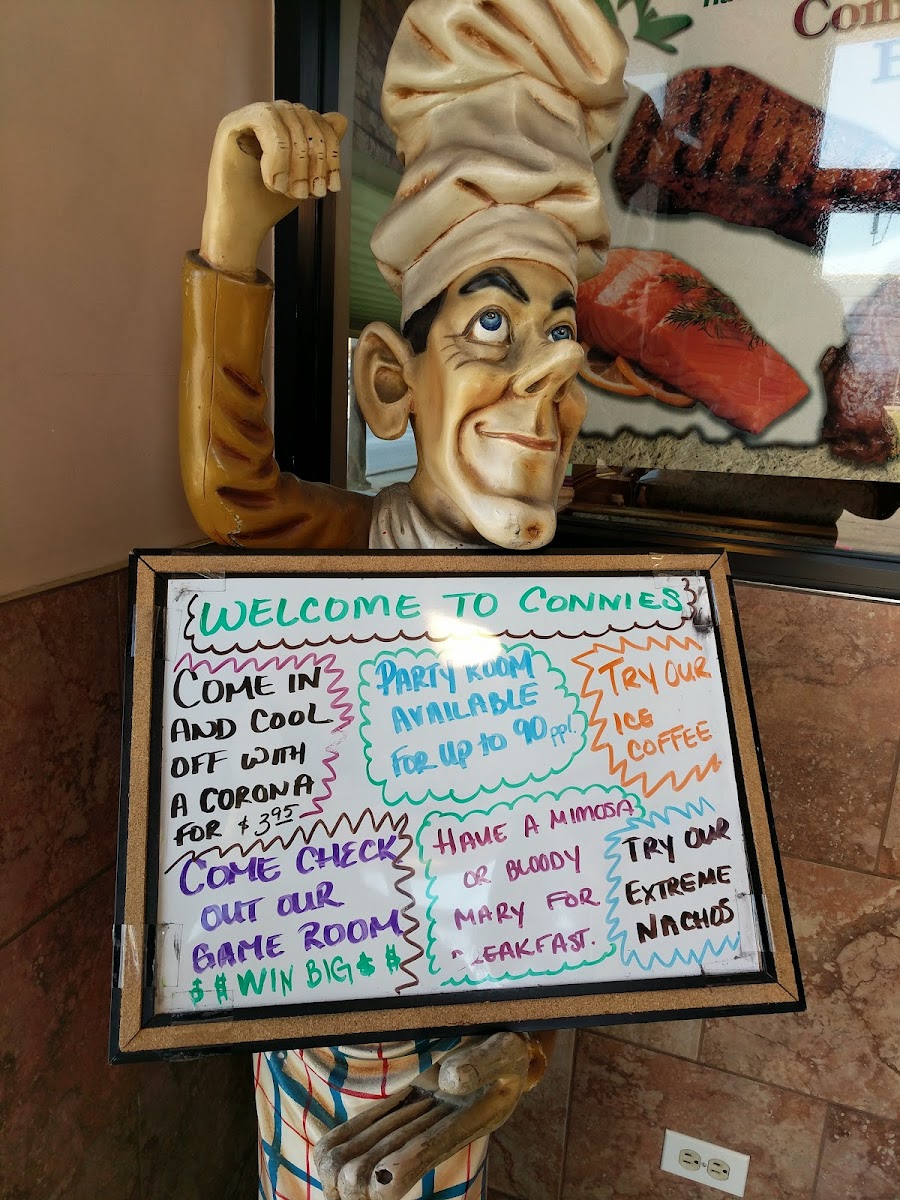 Com
WELCOME TO CONNIES
COME IN
AND COOL
OFF WITH
A CORONA
FOR $3.95
PARTY ROOM
AVAILABLE
FOR UP to 90 pp!.
TRY OUR
ICE
COFFEE
COME CHECK
OUT OUR
GAME ROOM
$ $ WIN BIG $ $
HAVE A MIMOSA
OR BLOODY
MARY FOR
BREAKFAST.
TRY OUR
EXTREME
NACHOS